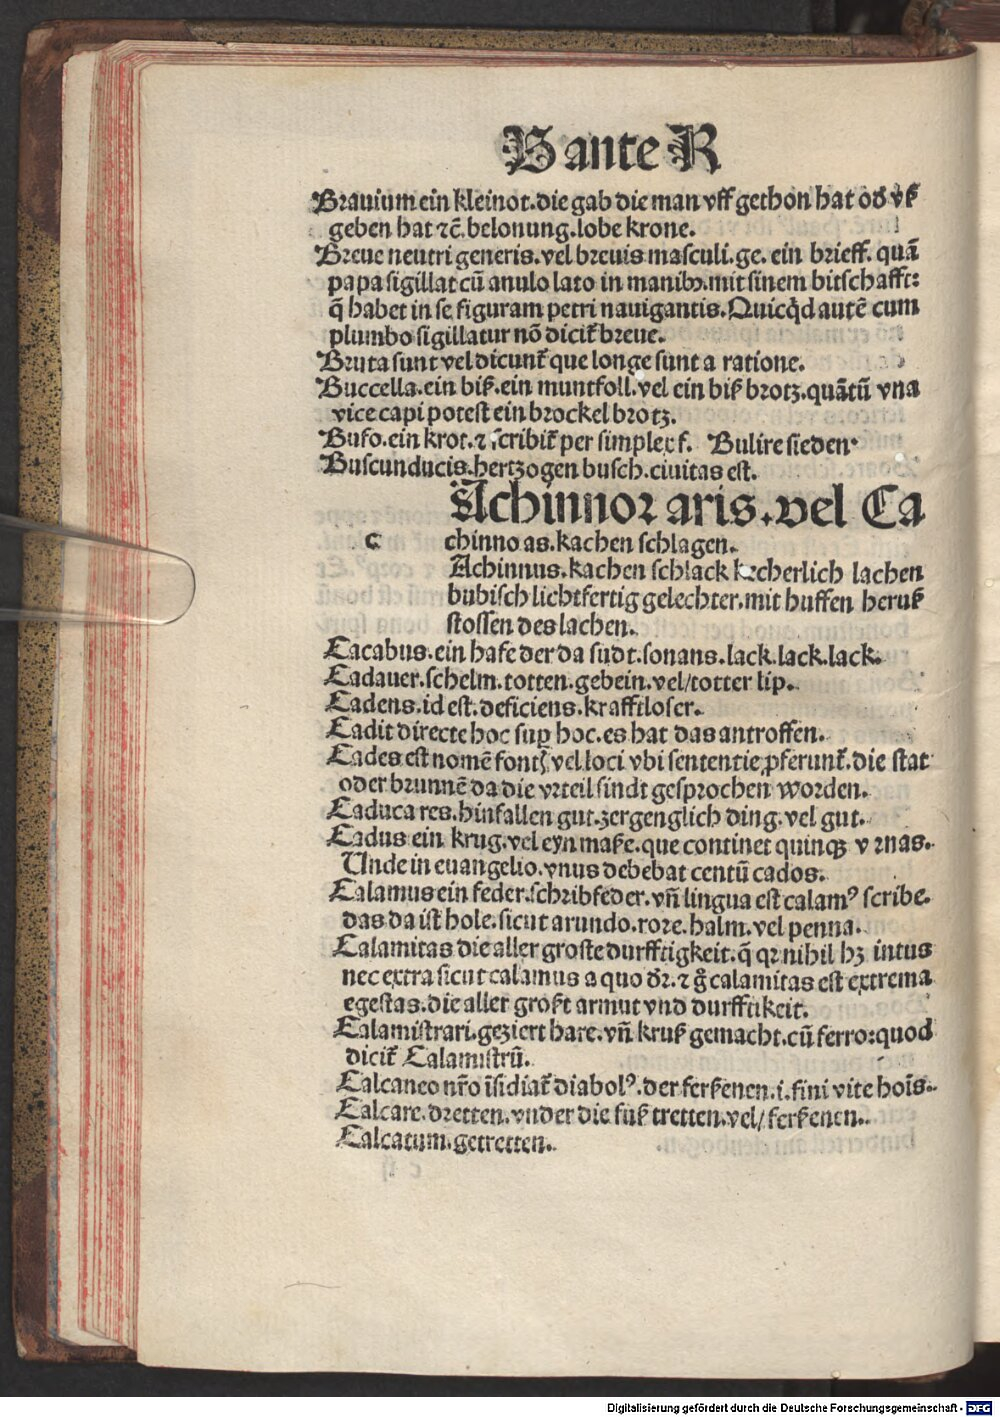 B ante R
Brauium ein kleinot. die gab die man vff gethon hat od̕ vß
geben hat ⁊c̄. belonung. lobe krone.
Breue neutri generis. vel breuis masculi. ge. ein brieff. quā
papa sigillat cū anulo lato in manibꝰ. mit sinem bitschafft:
q̄ habet in se figuram petri nauigantis. Quicq̇d autē cum
plumbo sigillatur nō dicit̕ breue.
Bruta sunt vel dicunt̕ que longe sunt a ratione.
Buccella. ein biß. ein muntfoll. vel ein biß brotz. quātū vna
vice capi potest ein brockel brotz.
Bufo. ein krot. ⁊ scribit̕ per simplex f. Bulire sieden.
Buscunducis. hertzogen busch. ciuitas est.
Achinnor aris. vel Ca
c chinno as. kachen schlagen.
Achinnus. kachen schlack kecherlich lachen
bubisch lichtfertig gelechter. mit huffen heruß
stossen des lachen.
Cacabus. ein hafe der da sudt. sonans. lack. lack. lack.
Cadauer. schelm. totten. gebein. vel/ totter lip.
Cadens. id est. deficiens. krafftloser.
Cadit directe hoc suꝑ hoc. es hat das antroffen.
Cades est nomē fontꝭ vel loci vbi sententie ꝓferunt̕. die stat
oder brunnē da die vrteil sindt gesprochen worden.
Caduca res. hinfallen gut. zergenglich ding. vel gut.
Cadus ein krug. vel eyn maße. que continet quinqꝫ vrnas.
Unde in euangelio. vnus debebat centū cados.
Calamus ein feder. schribfeder. vñ lingua est calamꝰ scribe.
das da ist hole. sicut arundo. rore. halm. vel penna.
Calamitas die aller groste durfftigkeit. q̄ qꝛ nihil hꝫ intus
nec extra sicut calamus a quo dr̄. ⁊ g̊ calamitas est extrema
egestas. die aller großt armut vnd durfftikeit.
Calamistrari. geziert hare. vñ kruß gemacht. cū ferro: quod
dicit̕ Calamistrū.
Calcaneo nr̄o īsidiat̕ diabolꝰ. der ferßenen. i. fini vite hoīs.
Calcare. dretten. vnder die fuß tretten. vel/ ferßenen.
Calcatum. getretten.
Digitalisierung gefördert durch die Deutsche Forschungsgemeinschaft - DFG